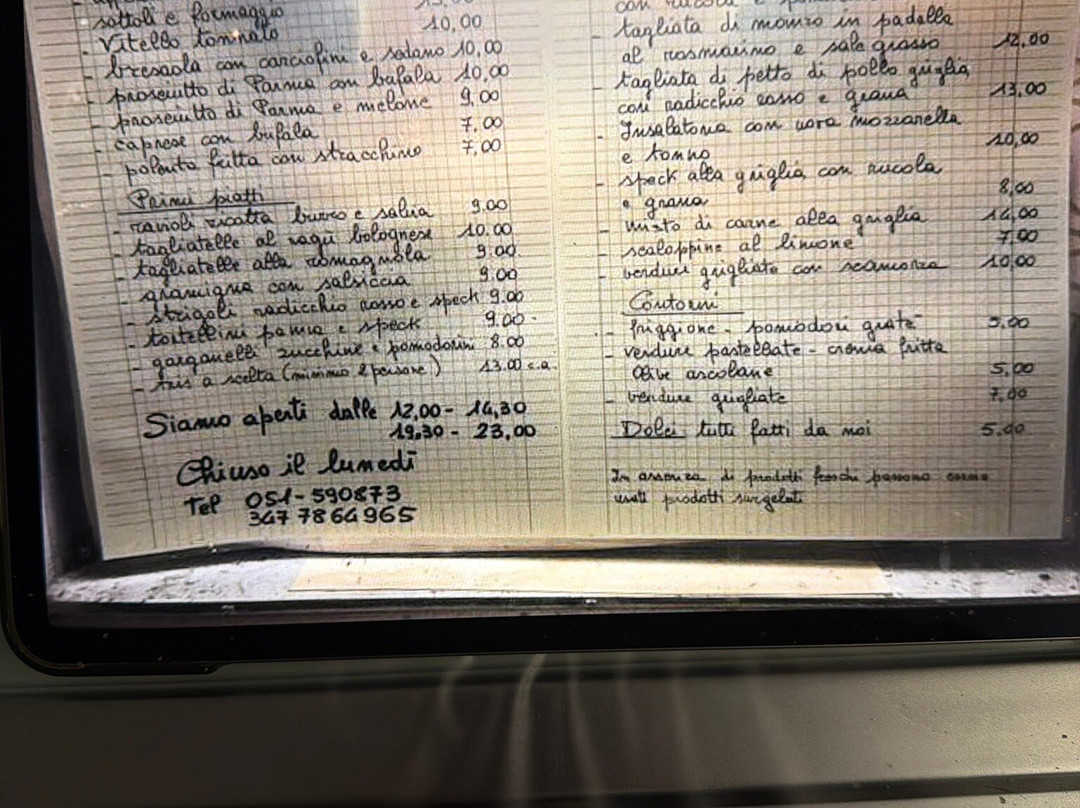 sottoli e formaggio
- Vitello tonnato 10,00
- bresaola con carciofini e sedano 10,00
- prosciutto di Parma con bufala 10,00
- prosciutto di Parma e melone 9,00
- caprese con bufala 7,00
- polenta fritta con stracchino 7,00
Primi piatti
- ravioli ricotta burro e salvia 9.00
- tagliatelle al ragù bolognese 10.00
- tagliatelle alla romagnola 9.00
- gramigna con salsiccia 9.00
- strigoli radicchio rosso e speck 9.00
- tortellini panna e speck 9.00
- garganelli zucchine e pomodorini 8.00
- tris a scelta (minimo 2 persone) 13.00 c.a.
Siamo aperti dalle 12,00 - 14,30
19.30 - 23,00
Chiuso il lunedì
Tel 051-590873
347 7864965
- tagliata di manzo in padella
al rosmarino e sale grosso 12,00
- tagliata di petto di pollo griglia
con radicchio rosso e grana 13,00
- Insalatona con uova mozzarella
e tonno 10,00
- speck alla griglia con rucola
e grana 8,00
- misto di carne alla griglia 14,00
- scaloppine al limone 7,00
- verdure grigliate con scamorza 10,00
Contorni
- friggione - pomodori gratè 5,00
- verdure pastellate - crema fritta
Olive ascolane 5,00
- verdure grigliate 7,00
Dolci tutti fatti da noi 5.00
In assenza di prodotti freschi possono essere
usati prodotti surgelati